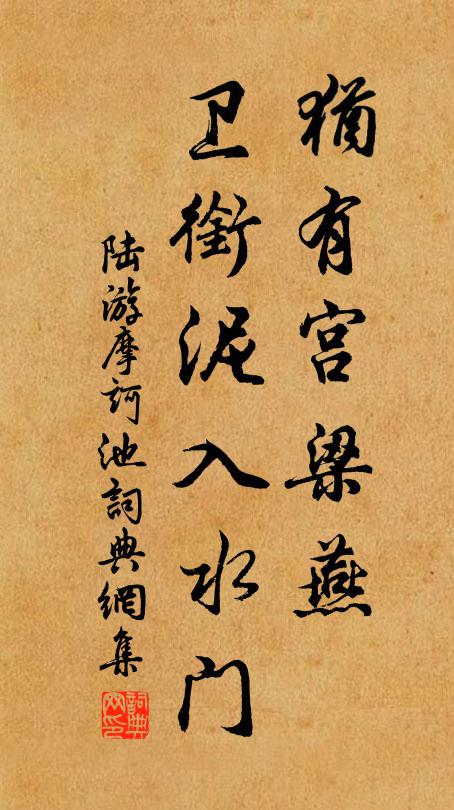 猶有宫梁燕
卫銜泥入水门
陆游摩訶池詞典網集
詞典
网印